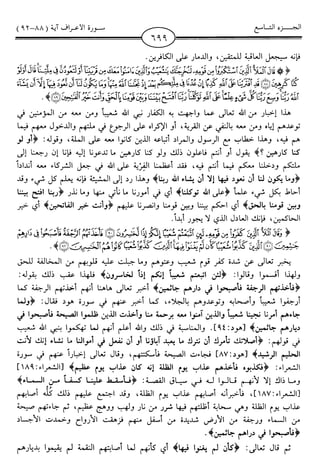 الجـــزء التـــاسع
سـورة الأعـراف آية (٨٨-٩٢)
٦٩٩
فإنه سيجعل العاقبة للمتقين، والدمار على الكافرين.
هذا إخبار من الله تعالى عما واجهت به الكفار نبي الله شعيباً ومن معه من المؤمنين في
توعدهم إياه ومن معه بالنفي عن القرية، أو الإكراه على الرجوع في ملتهم والدخول معهم فيما
هم فيه، وهذا خطاب مع الرسول والمراد أتباعه الذين كانوا معه على الملة، وقوله: ﴿أو لو
كنا كارهين﴾؟ يقول أو أنتم فاعلون ذلك ولو كنا كارهين ما تدعونا إليه فإنا إن رجعنا إلى
ملتكم ودخلنا معكم فيما أنتم فيه، فقد أعظمنا الفرية على الله في جعل الشركاء معه أنداداً
﴿وما يكون لنا أن نعود فيها إلا أن يشاء الله ربنا﴾ وهذا رد إلى المشيئة فإنه يعلم كل شيء وقد
أحاط بكل شيء علماً ﴿على الله توكلنا﴾ أي في أمورنا ما نأتي منها وما نذر ﴿ربنا افتح بيننا
وبين قومنا بالحق﴾ أي احكم بيننا وبين قومنا وانصرنا عليهم ﴿وأنت خير الفاتحين﴾ أي خير
الحاكمين، فإنك العادل الذي لا يجور أبداً.
يخبر تعالى عن شدة كفر قوم شعيب وعتوهم وما جبلت عليه قلوبهم من المخالفة للحق
ولهذا أقسموا وقالوا: ﴿لئن اتبعتم شعيباً إنكم إذاً لخاسرون﴾ فلهذا عقب ذلك بقوله:
﴿فأخذتهم الرجفة فأصبحوا في دارهم جاثمين﴾ أخبر تعالى هاهنا أنهم أخذتهم الرجفة كما
أرجفوا شعيباً وأصحابه وتوعدوهم بالجلاء، كما أخبر عنهم في سورة هود فقال: ﴿ولما
جاءهم أمرنا نجينا شعيباً والذين آمنوا معه برحمة منا وأخذت الذين ظلموا الصيحة فأصبحوا في
ديارهم جاثمين﴾ [هود:٩٤]. والمناسبة في ذلك والله أعلم أنهم لما تهكموا بنبي الله شعيب
في قولهم: ﴿أصلاتك تأمرك أن نترك ما يعبد آباؤنا أو أن نفعل في أموالنا ما نشاء إنك لأنت
الحليم الرشيد﴾ [هود:٨٧] فجاءت الصيحة فأسكتتهم، وقال تعالى إخباراً عنهم في سورة
الشعراء: ﴿فكذبوه فأخذهم عذاب يوم الظلة إنه كان عذاب يوم عظيم﴾ [الشعراء:١٨٩]
وما ذاك إلا لأنهم قالوا له في سياق القصة: ﴿فأسقط علينا كسفاً من السماء﴾
[الشعراء:١٨٧]، فأخبر أنه أصابهم عذاب يوم الظلة، وقد اجتمع عليهم ذلك كله أصابهم
عذاب يوم الظلة وهي سحابة أظلتهم فيها شرر من نار ولهب ووهج عظيم، ثم جاءتهم صيحة
من السماء ورجفة من الأرض شديدة من أسفل منهم فزهقت الأرواح وخمدت الأجساد
﴿فأصبحوا في دراهم جاثمين﴾.
ثم قال تعالى: ﴿كأن لم يغنوا فيها﴾ أي كأنهم لما أصابتهم النقمة لم يقيموا بديارهم